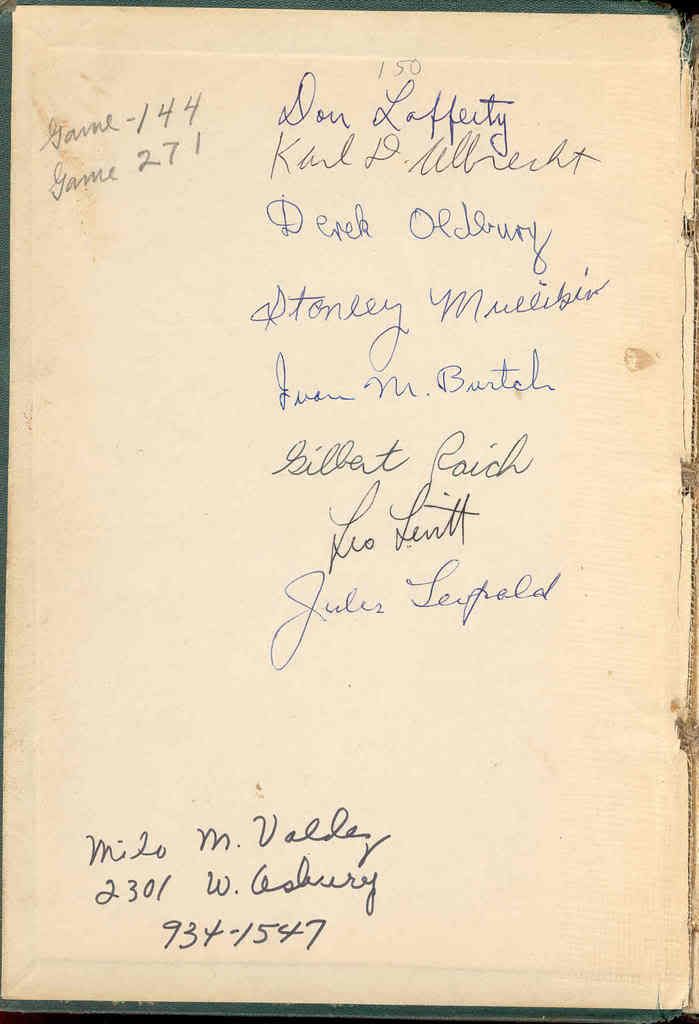 150
Game - 144
Game 271
Don Lafferty
Karl D. Albrecht
Derek Oldbury
Stanley Mullikin
Ivan M. Burtch
Gilbert Raich
Leo Levitt
Jules Leopold
Milo M. Valdez
2301 W. Asbury
934-1547